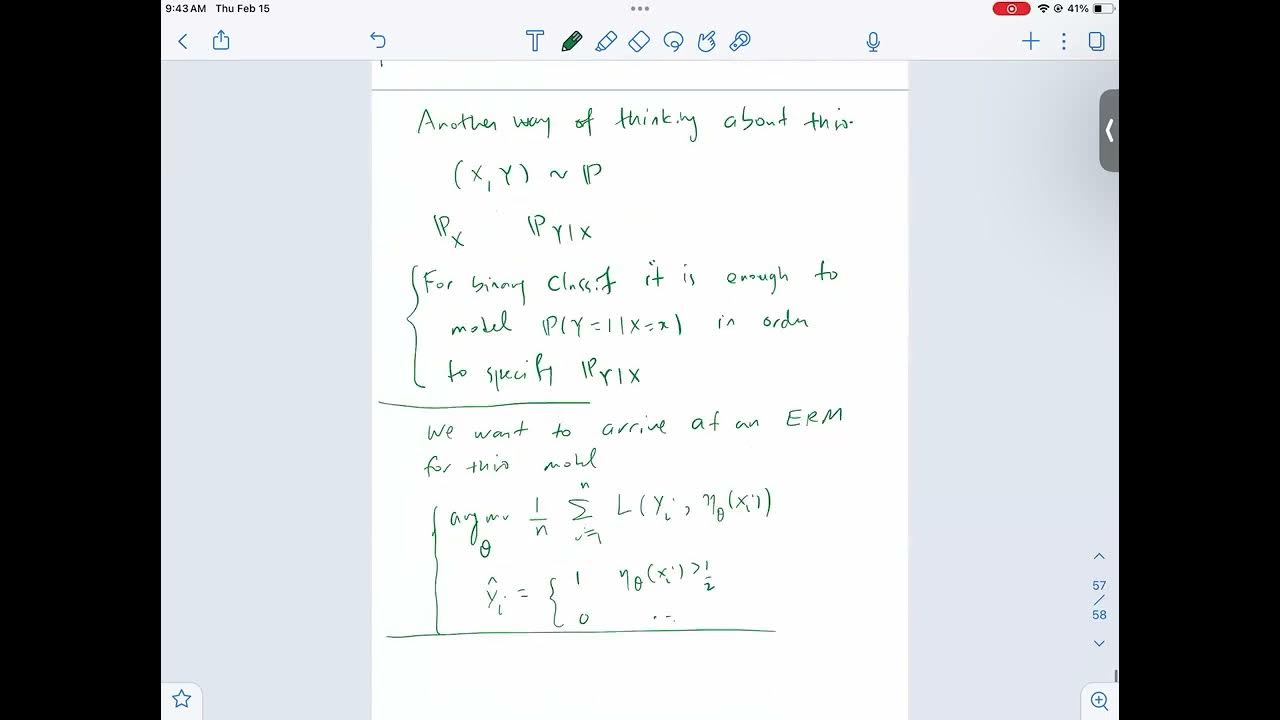 9:43 AM Thu Feb 15
41%
Another way of thinking about this.
(X, Y) ~ ℙ
ℙ_X ℙ_{Y|X}
For binary Classif it is enough to
model ℙ(Y=1|X=x) in order
to specify ℙ_{Y|X}
We want to arrive at an ERM
for this model
argmin_θ 1/n ∑_{i=1}^n L(Y_i, η_θ(X_i))
ŷ_i = { 1 η_θ(x_i) > 1/2
0 ...
57
/
58